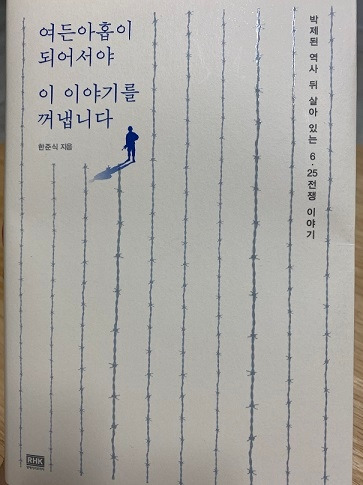 여든아홉이
되어서야
이 이야기를
꺼냅니다
한준식 지음
박제된 역사 뒤 살아 있는 6·25전쟁 이야기
RHK